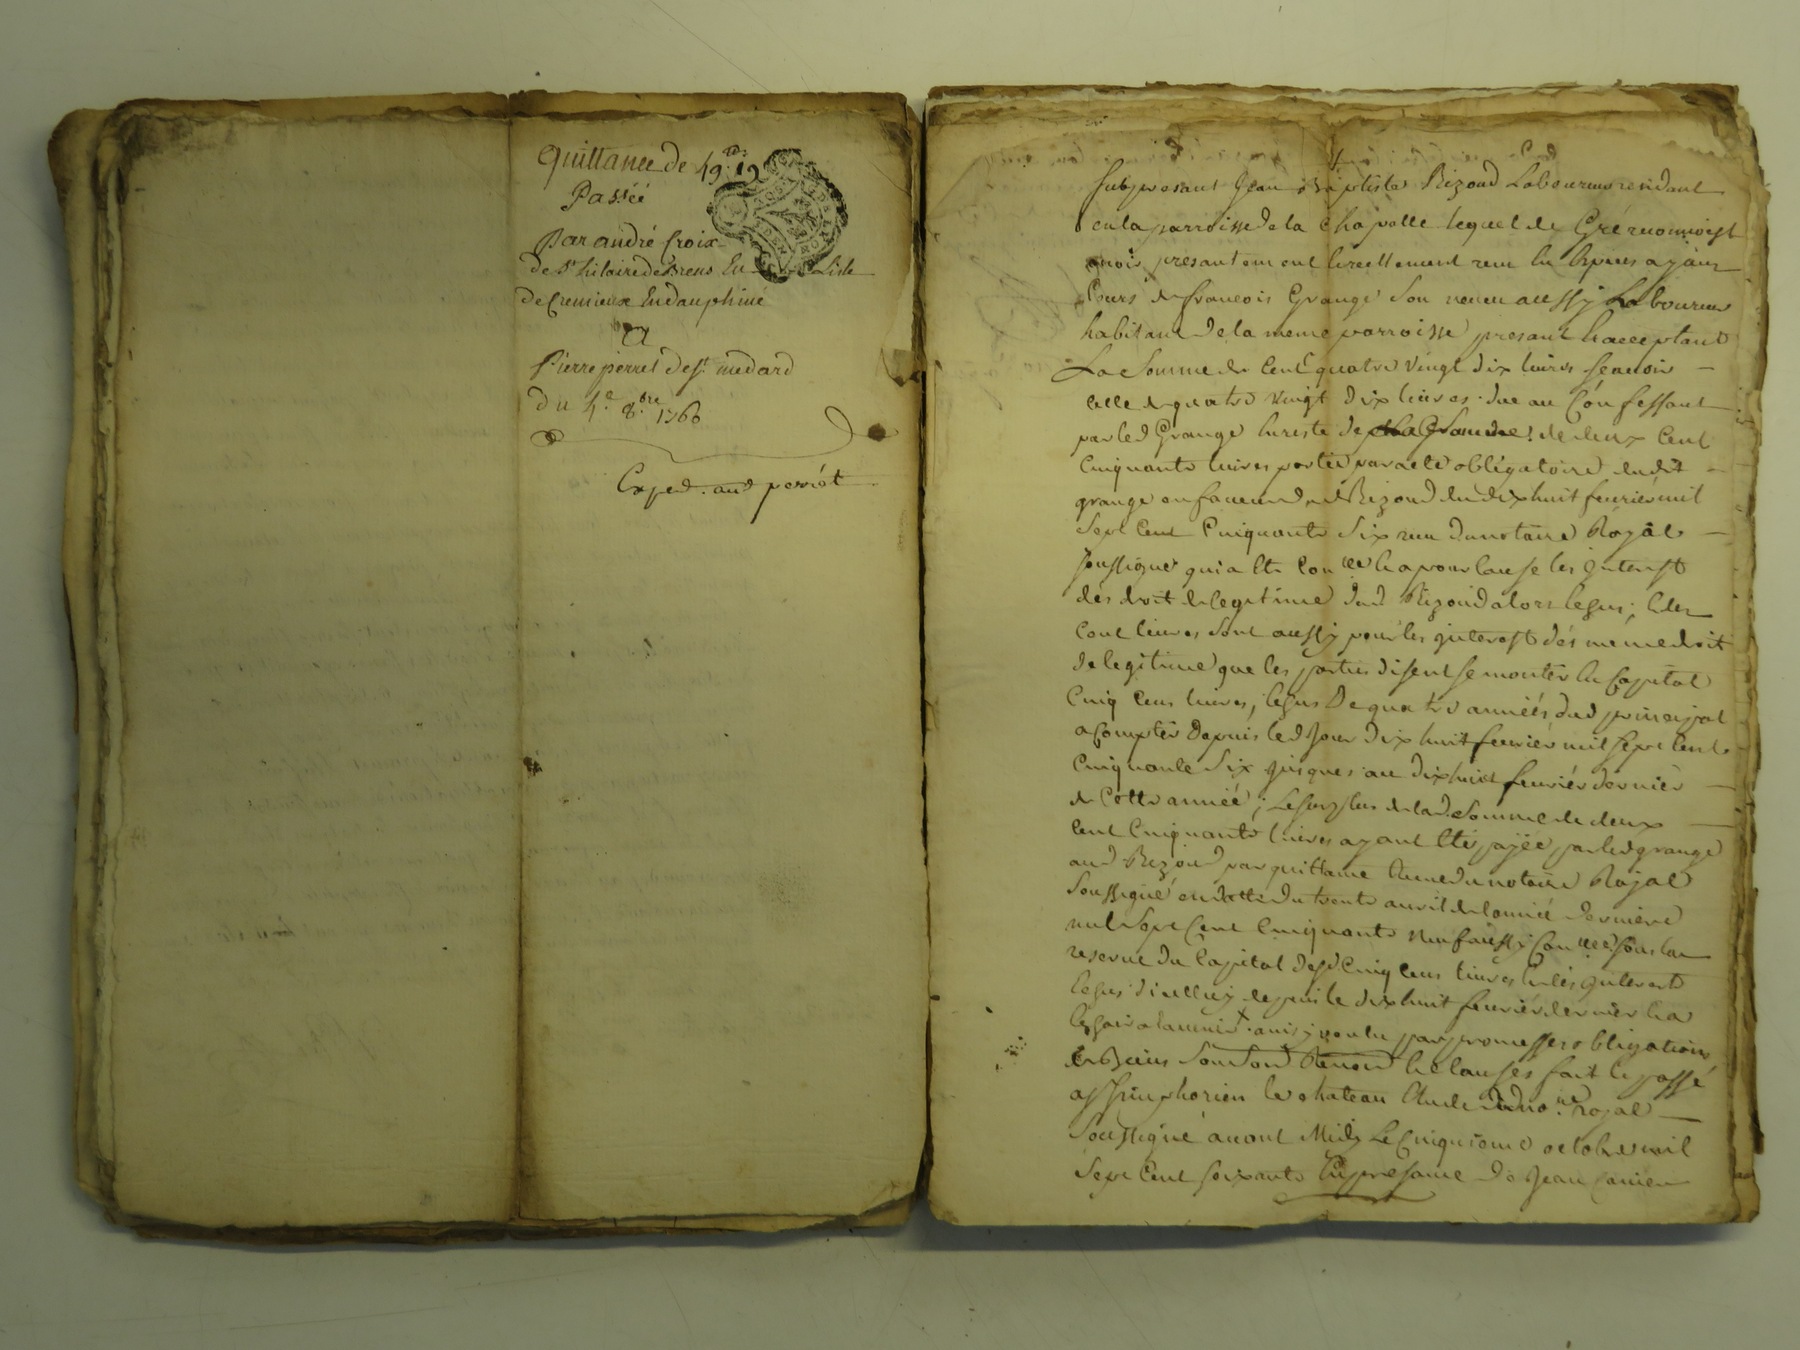 Quittance de 49.lt 19
Passée
Par andré Croix
de St hilaire de Brens En Lisle
de Cremieux En dauphiné
A
Pierre perret de St medard
du 4.e 8.bre 1760
Exped. aud perrét
fut present Jean Baptiste Rizoud Laboureur residant
en la parroisse de la Chapelle lequel de Gré reconnoist
avoir presantement et reellement reçu en Especes ayant
Cours de francois Grange son neveu aussy Laboureur
habitant de la meme parroisse present & acceptant
La Somme de Cent quatre vingt dix livres scavoir
celle de quatre vingt dix livres due au Confessant
par led Grange en reste de de deux Cent
Cinquante livres portée par acte obligatoire dudit
grange en faveur dud Rizoud du dix huit fevriér mil
Sept Cent Cinquante Six reçu du notaire Royal
soussigné qui a été con.llé & a pour Cause les Interest
dés droit de legitime dud Rizoud alors echus; & les
Cent livres sont aussy pour les interest dés meme droit
de legitime que les parties disent se monter en Capital
Cinq Cens livres, echus de quatre années dud principal
a Compter depuis led Jour dix huit fevriér mil sept Cent
Cinquante Six jusques au dix huit fevriér derniér
de Cette année; Le surplus de lad. Somme de deux
Cent Cinquante livres ayant été payée par led grange
aud Rizoud par quittance du notaire Royal
Soussigné en datte du trente avril de l'année derniere
mil Sept Cent Cinquante Neuf aussy Con.llée sous la
reserve du Capital desd Cinq Cens livres & des interest
echus d'icelluy depuis le dix huit fevriér dernier & a
Echoir a l'avenir ainsy voulu par promesses obligations
de Biens & Clauses fait & passé
a St Simphorien le chateau Etude dud no.re royal
Soussigné avant Midy Le Cinquieme octobre mil
Sept Cent soixante En presance de Jean